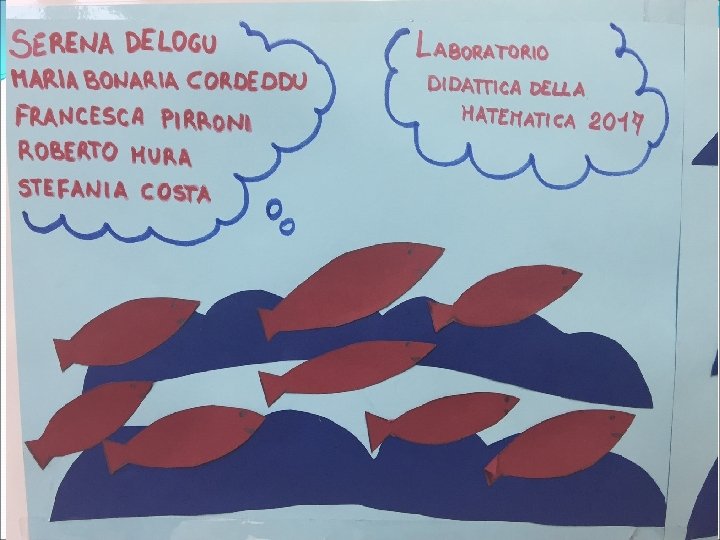 SERENA DELOGU
MARIA BONARIA CORDEDDU
FRANCESCA PIRRONI
ROBERTO MURA
STEFANIA COSTA
LABORATORIO
DIDATTICA DELLA
MATEMATICA 2017